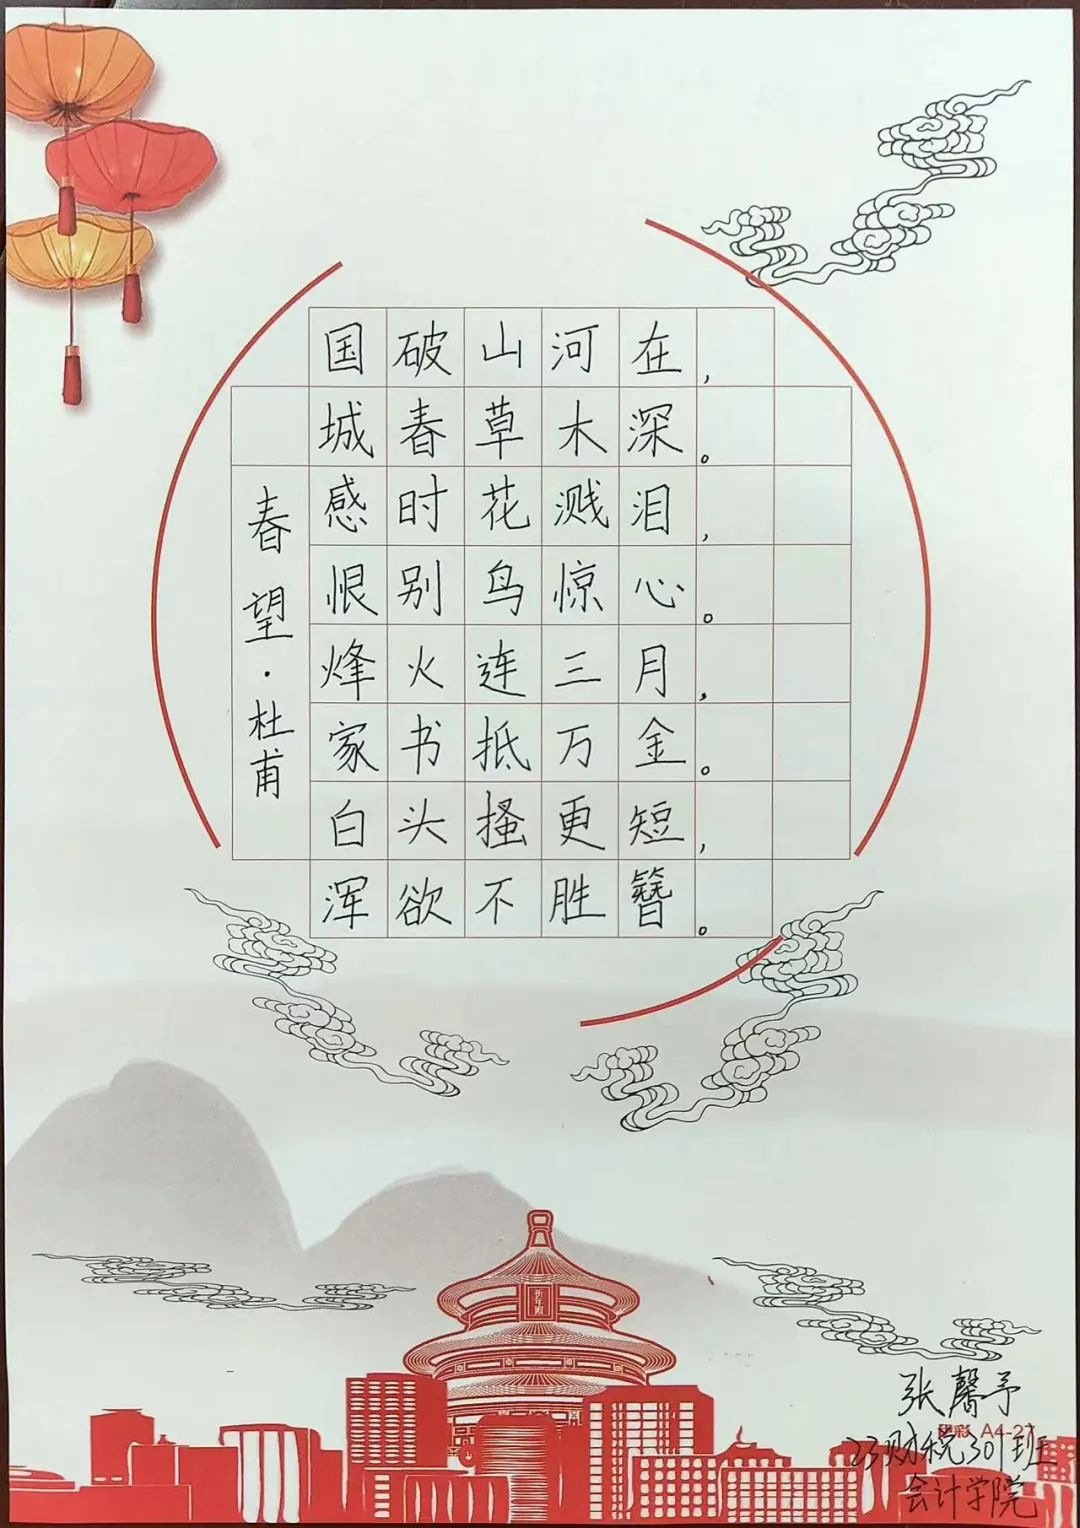 春望·杜甫
国破山河在,
城春草木深。
感时花溅泪,
恨别鸟惊心。
烽火连三月,
家书抵万金。
白头搔更短,
浑欲不胜簪。
祈年殿
张馨予
A4-27
23财税301班
会计学院